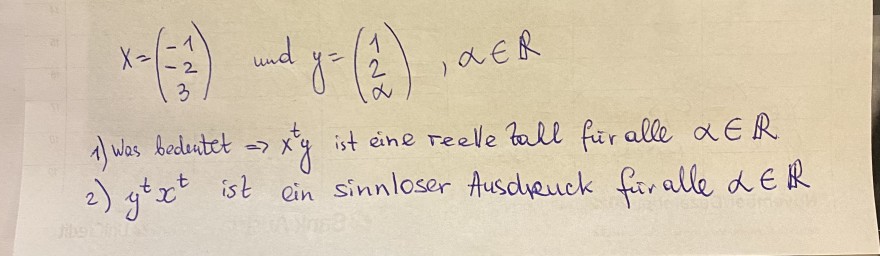 x = (-1 -2 3) und y = (1 2 α), α ∈ ℝ
1) Was bedeutet => xᵗy ist eine reelle Zall für alle α ∈ ℝ
2) yᵗxᵗ ist ein sinnloser Ausdruck für alle α ∈ ℝ